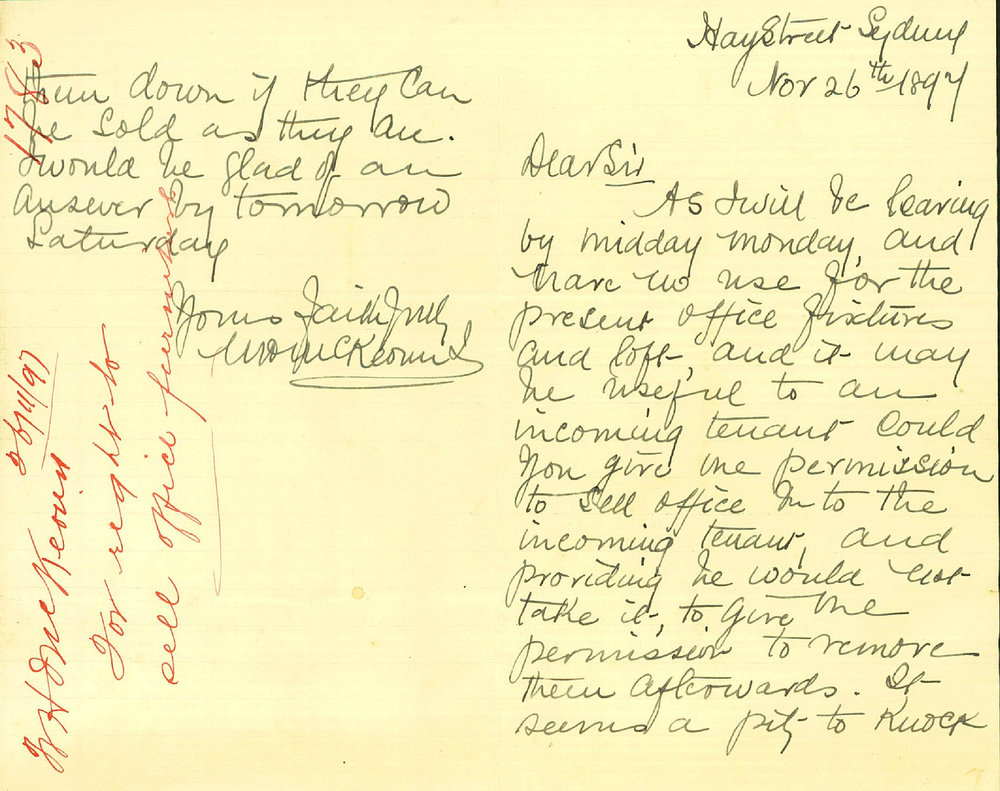 Hay Street Sydney
Nov 26th 1897
Dear Sir
As I will be leaving
by midday Monday, and
have no use for the
present office fixtures
and loft, and it may
be useful to an
incoming tenant could
you give me permission
to sell office to the
incoming tenant, and
providing he would not
take it, to give me
permission to remove
them afterwards. It
seems a pity to knock
them down if they can
be sold as they are.
I would be glad of an
answer by tomorrow
Saturday
Yours faithfully
McKeown
1783
26/11/97
For right to
sell office furniture